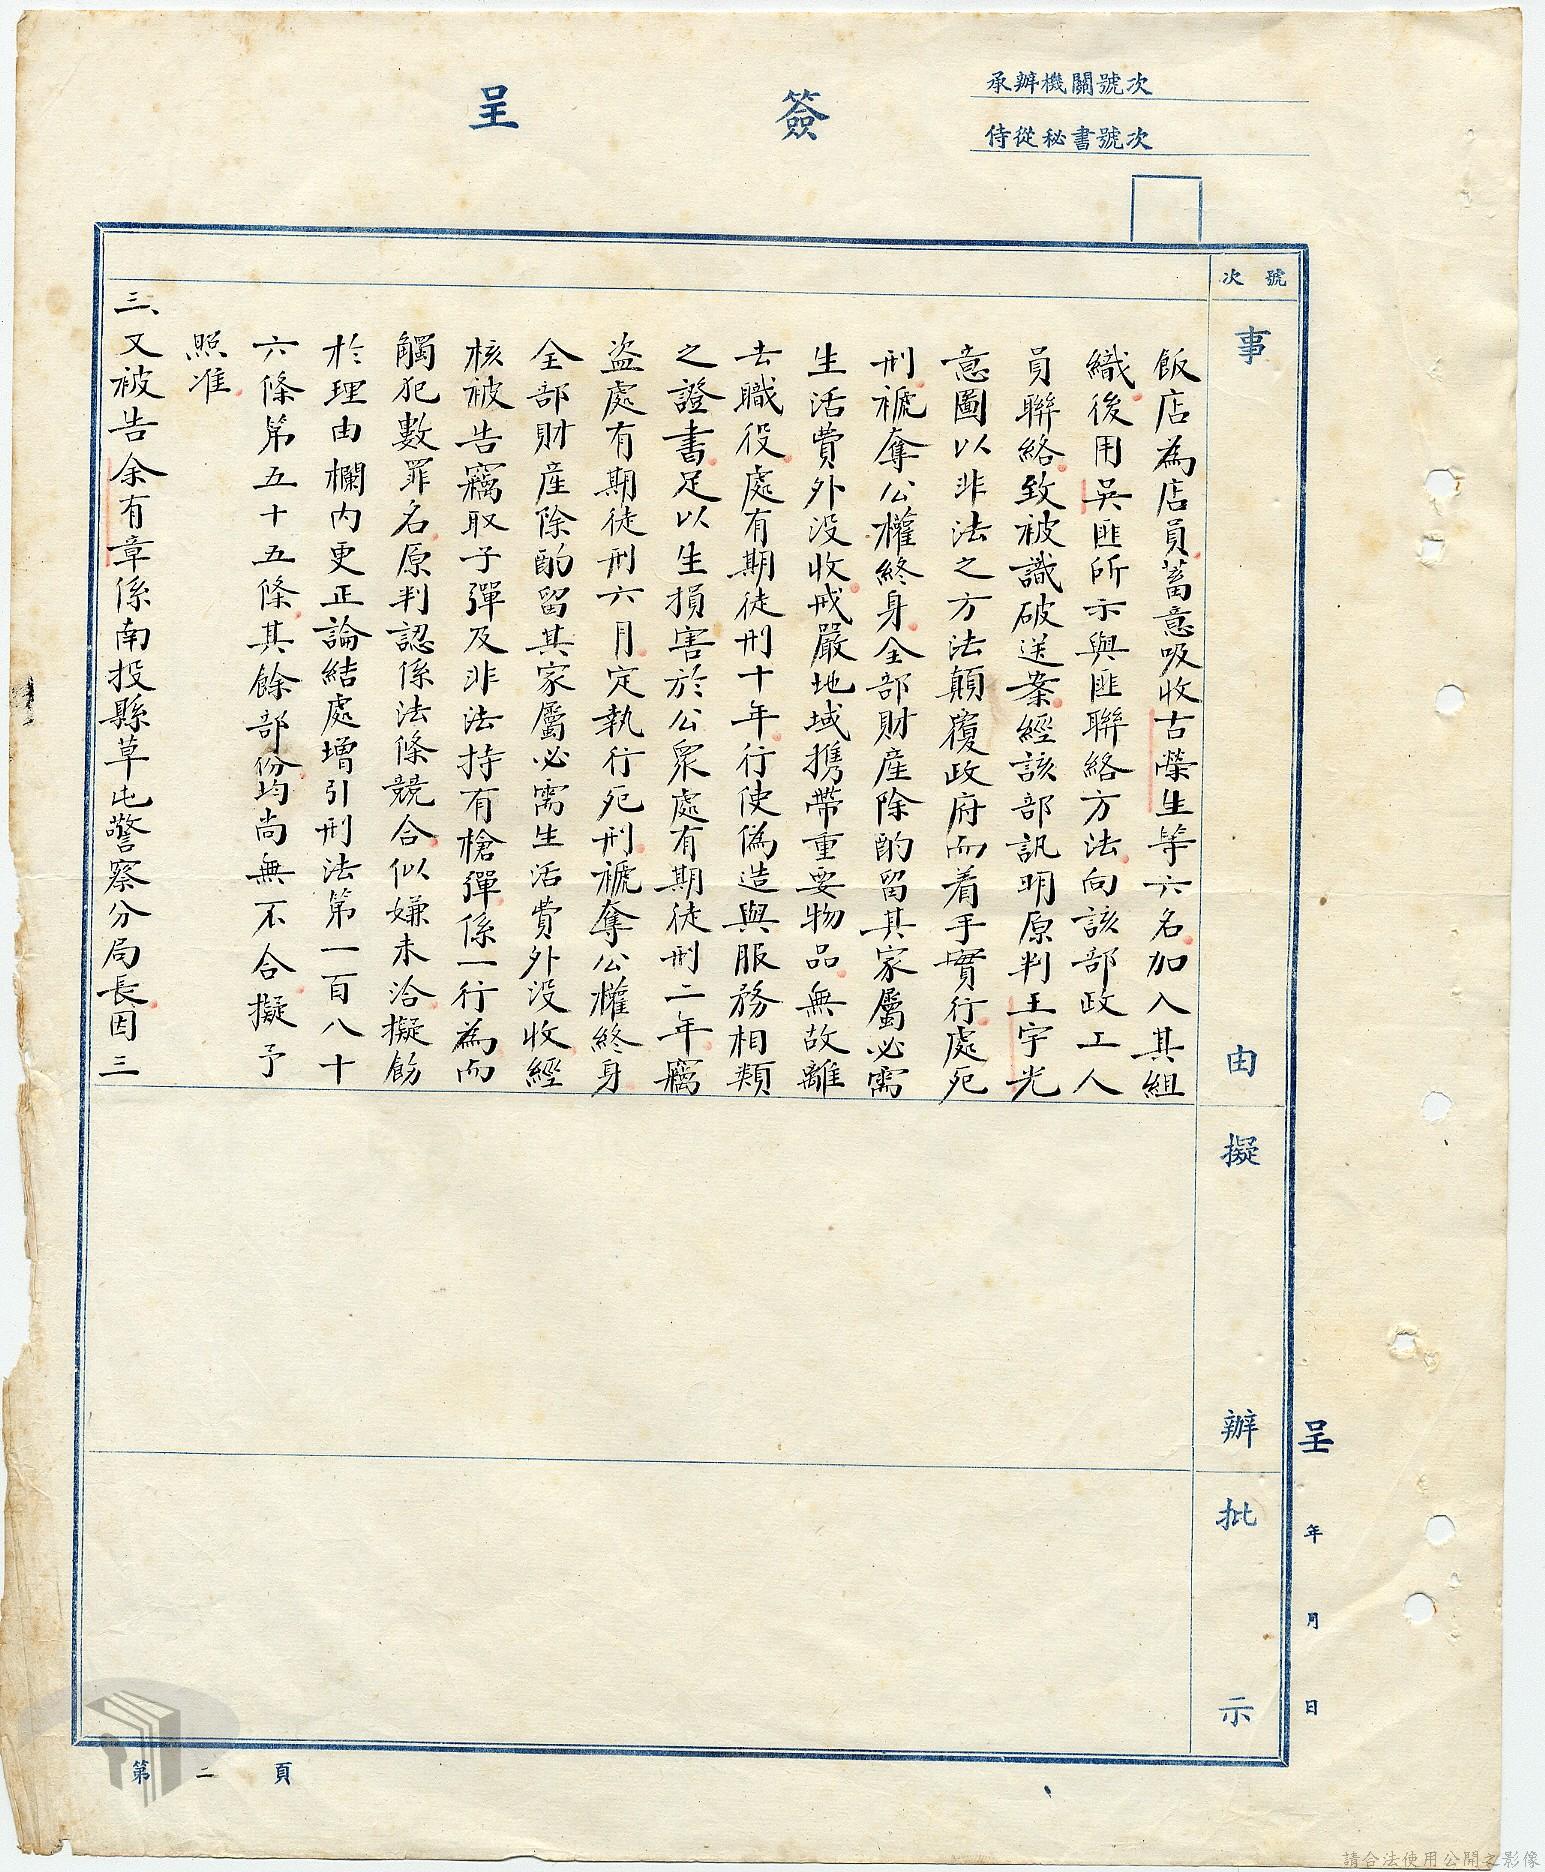 簽呈
承辦機關號次
侍從秘書號次
號次
事由
擬辦
批示
飯店為店員蓄意吸收古榮生等六名加入其組
織後用吳匪所示與匪聯絡方法向該部政工人
員聯絡致被識破送案經該部訊明原判王宇光
意圖以非法之方法顛覆政府而着手實行處死
刑褫奪公權終身全部財產除酌留其家屬必需
生活費外沒收戒嚴地域携帶重要物品無故離
去職役處有期徒刑十年行使偽造與服務相類
之證書足以生損害於公眾處有期徒刑二年竊
盜處有期徒刑六月定執行死刑褫奪公權終身
全部財產除酌留其家屬必需生活費外沒收經
核被告竊取子彈及非法持有槍彈係一行為而
觸犯數罪名原判認係法條競合似嫌未洽擬飭
於理由欄內更正論結處增引刑法第一百八十
六條第五十五條其餘部份均尚無不合擬予
照准
三、又被告余有章係南投縣草屯警察分局長因三
呈 年 月 日
第二頁
請合法使用公開之影像